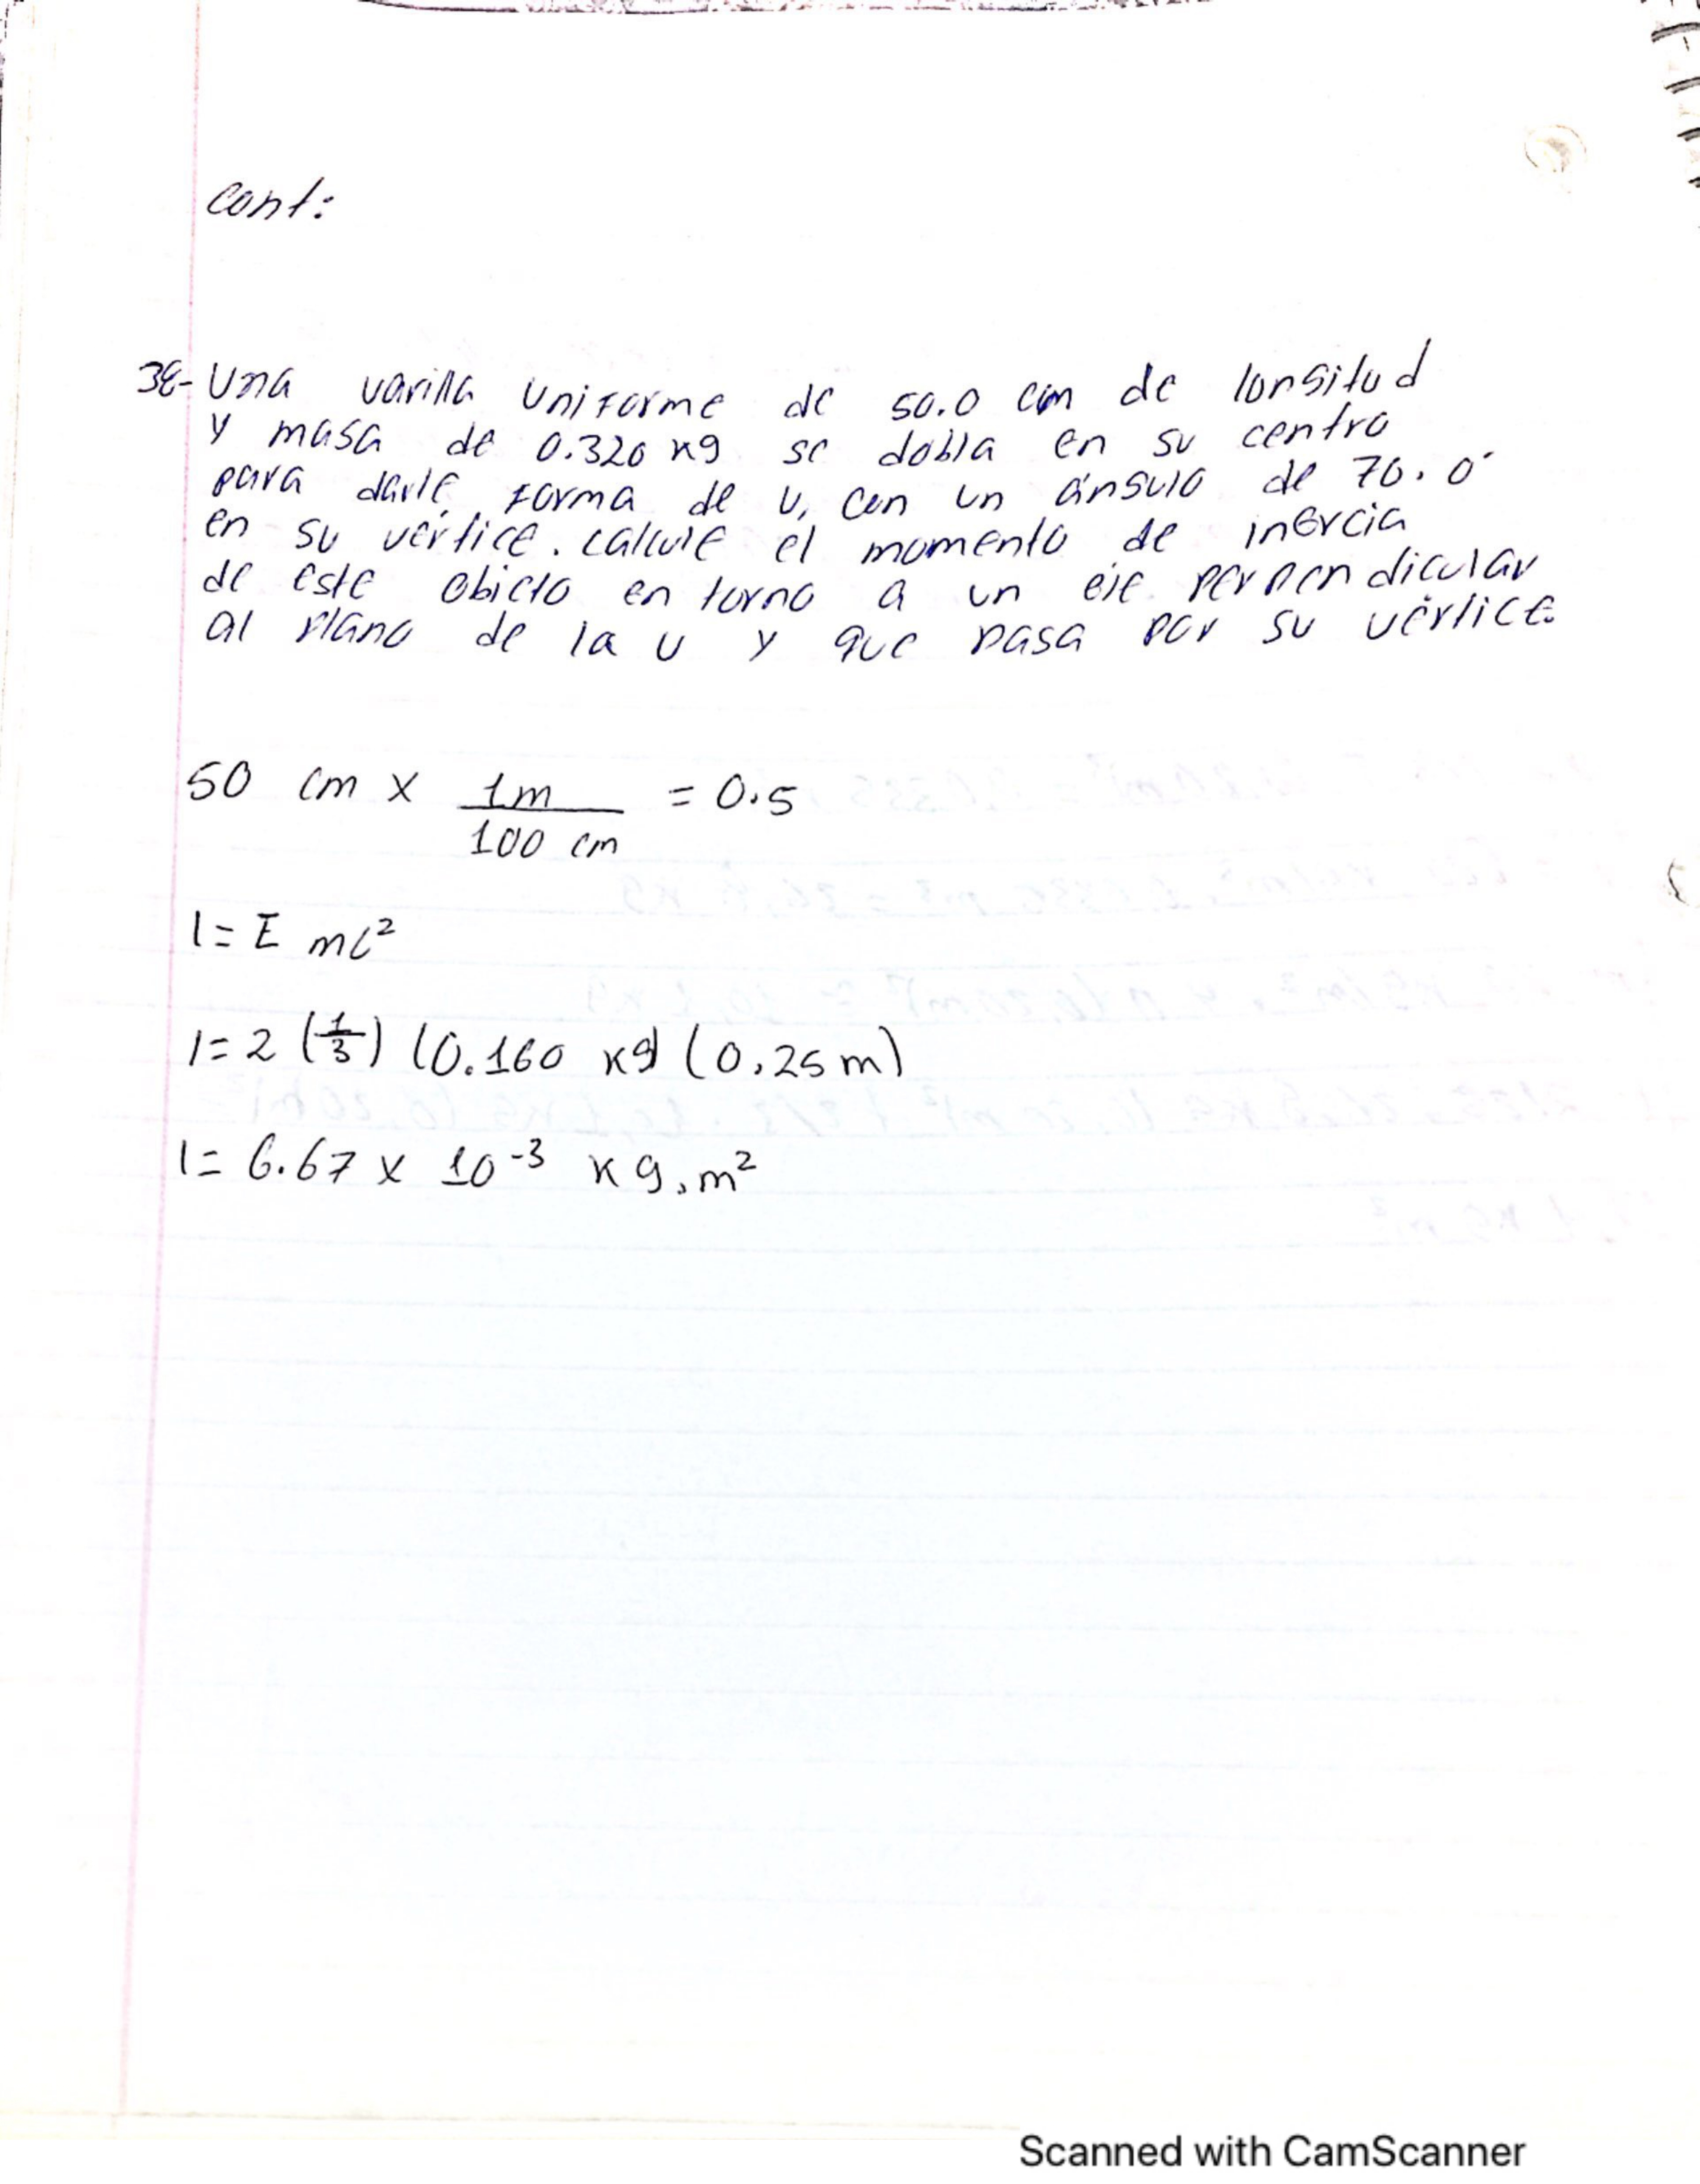 cont:
38- Una varilla uniforme de 50.0 cm de longitud
y masa de 0.320 kg se dobla en su centro
para darle forma de U, con un ángulo de 70.0°
en su vértice. calcule el momento de inercia
de este objeto en torno a un eje perpendicular
al plano de la u y que pasa por su vértice.
50 cm x 1m / 100 cm = 0.5
I = Σ mL²
I = 2 (1/3) (0.160 kg) (0.25 m)
I = 6.67 x 10⁻³ kg.m²
Scanned with CamScanner